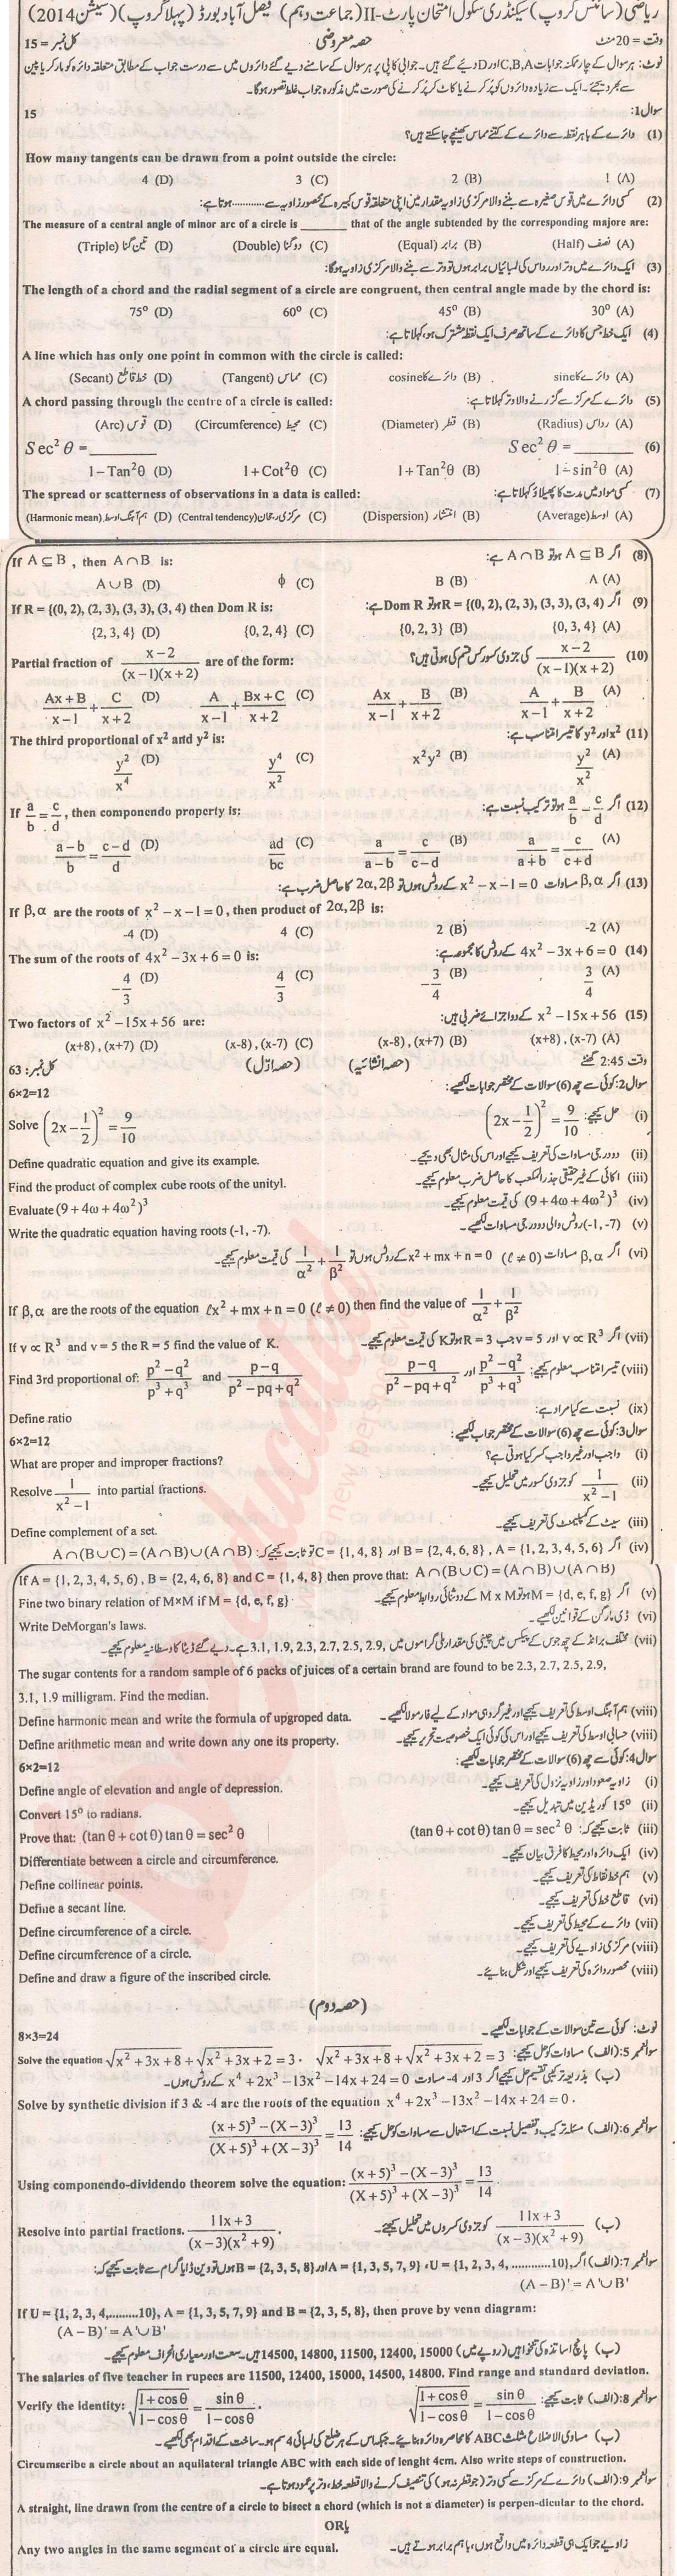 ریاضی (سائنس گروپ) سیکنڈری سکول امتحان پارٹ-II (جماعت دہم) فیصل آباد بورڈ (پہلا گروپ) (سیشن 2014)
وقت = 20 منٹ حصہ معروضی کل نمبر = 15
نوٹ: ہر سوال کے چار ممکنہ جوابات C,B,A اور D دیئے گئے ہیں۔ جوابی کاپی پر ہر سوال کے سامنے دیے گئے دائروں میں سے درست جواب کے مطابق متعلقہ دائرہ کو مارکر یا پین
سے بھر دیجئے۔ ایک سے زیادہ دائروں کو پُر کرنے یا کاٹ کر پُر کرنے کی صورت میں مذکورہ جواب غلط تصور ہوگا۔
سوال 1: 15
(1) دائرے کے باہر نقطہ سے دائرے کے کتنے مماس کھینچے جا سکتے ہیں؟
How many tangents can be drawn from a point outside the circle:
4 (D) 3 (C) 2 (B) 1 (A)
(2) کسی دائرے میں قوسِ صغیرہ سے بننے والا مرکزی زاویہ مقدار میں اپنی متعلقہ قوسِ کبیرہ کے محصور زاویہ سے ............ ہوتا ہے:
The measure of a central angle of minor arc of a circle is ________ that of the angle subtended by the corresponding majore are:
(Triple) تین گنا (D) (Double) دو گنا (C) (Equal) برابر (B) (Half) نصف (A)
(3) ایک دائرے میں وتر اور رداس کی لمبائیاں برابر ہوں تو وتر سے بننے والا مرکزی زاویہ ہوگا:
The length of a chord and the radial segment of a circle are congruent, then central angle made by the chord is:
75° (D) 60° (C) 45° (B) 30° (A)
(4) ایک خط جس کا دائرے کے ساتھ صرف ایک نقطہ مشترک ہو، کہلاتا ہے:
A line which has only one point in common with the circle is called:
(Secant) خط قاطع (D) (Tangent) مماس (C) دائرے کا cosine (B) دائرے کا sine (A)
A chord passing through the centre of a circle is called: (5) دائرے کے مرکز سے گزرنے والا وتر کہلاتا ہے:
(Arc) قوس (D) (Circumference) محیط (C) (Diameter) قطر (B) (Radius) رداس (A)
Sec² θ = ________ Sec² θ = ________ (6)
1−Tan²θ (D) 1+Cot²θ (C) 1+Tan²θ (B) 1−sin²θ (A)
The spread or scatterness of observations in a data is called: (7) کسی مواد میں مدات کا پھیلاؤ کہلاتا ہے:
(Harmonic mean) ہم آہنگ اوسط (D) (Central tendency) مرکزی رجحان (C) (Dispersion) انتشار (B) (Average) اوسط (A)
If A ⊆ B , then A∩B is: (8) اگر A ⊆ B ہو تو A∩B ہے:
A∪B (D) ϕ (C) B (B) A (A)
If R = {(0, 2), (2, 3), (3, 3), (3, 4) then Dom R is: (9) اگر R = {(0, 2), (2, 3), (3, 3), (3, 4) ہو تو Dom R ہے:
{2, 3, 4} (D) {0, 2, 4} (C) {0, 2, 3} (B) {0, 3, 4} (A)
Partial fraction of (x−2)/((x−1)(x+2)) are of the form: (10) (x−2)/((x−1)(x+2)) کی جزوی کسور کس قسم کی ہوتی ہیں؟
(Ax+B)/(x−1) + C/(x+2) (D) A/(x−1) + (Bx+C)/(x+2) (C) Ax/(x−1) + B/(x+2) (B) A/(x−1) + B/(x+2) (A)
The third proportional of x² and y² is: (11) x² اور y² کا تیسرا متناسب ہے:
y²/x⁴ (D) y⁴/x² (C) x²y² (B) y²/x² (A)
If a/b = c/d, then componendo property is: (12) اگر a/b = c/d ہو تو ترکیب نسبت ہے:
(a−b)/b = (c−d)/d (D) ad/bc (C) a/(a−b) = c/(c−d) (B) a/(a+b) = c/(c+d) (A)
(13) اگر β,α مساوات x²−x−1=0 کے روٹس ہوں تو 2α,2β کا حاصل ضرب ہے:
If β,α are the roots of x²−x−1=0, then product of 2α,2β is:
-4 (D) 4 (C) 2 (B) -2 (A)
The sum of the roots of 4x²−3x+6=0 is: (14) 4x²−3x+6=0 کے روٹس کا مجموعہ ہے:
−4/3 (D) 4/3 (C) −3/4 (B) 3/4 (A)
Two factors of x²−15x+56 are: (15) x²−15x+56 کے دو اجزائے ضربی ہیں:
(x+8) , (x+7) (D) (x-8) , (x-7) (C) (x-8) , (x+7) (B) (x+8) , (x-7) (A)
وقت 2:45 گھنٹے (حصہ انشائیہ) (حصہ اوّل) کل نمبر: 63
سوال 2: کوئی سے چھ (6) سوالات کے مختصر جوابات لکھیے: 6×2=12
Solve (2x−1/2)² = 9/10 (i) حل کیجیے: (2x−1/2)² = 9/10
Define quadratic equation and give its example. (ii) دو درجی مساوات کی تعریف کیجیے اور اس کی مثال بھی دیجیے۔
Find the product of complex cube roots of the unityl. (iii) اکائی کے غیر حقیقی جذر المکعب کا حاصل ضرب معلوم کیجیے۔
Evaluate (9+4ω+4ω²)³ (iv) (9+4ω+4ω²)³ کی قیمت معلوم کیجیے۔
Write the quadratic equation having roots (-1, -7). (v) (-1, -7) روٹس والی دو درجی مساوات لکھیے۔
(vi) اگر β,α مساوات x²+mx+n=0 (ℓ≠0) کے روٹس ہوں تو 1/α² + 1/β² کی قیمت معلوم کیجیے۔
If β,α are the roots of the equation ℓx²+mx+n=0 (ℓ≠0) then find the value of 1/α² + 1/β²
If v ∝ R³ and v = 5 the R = 5 find the value of K. (vii) اگر v ∝ R³ اور v = 5 جب R = 3 ہو تو K کی قیمت معلوم کیجیے۔
Find 3rd proportional of: (p²−q²)/(p³+q³) and (p−q)/(p²−pq+q²) (viii) تیسرا متناسب معلوم کیجیے: (p²−q²)/(p³+q³) اور (p−q)/(p²−pq+q²)
Define ratio (ix) نسبت سے کیا مراد ہے:
6×2=12 سوال 3: کوئی سے چھ (6) سوالات کے مختصر جواب لکھیے:
What are proper and improper fractions? (i) واجب اور غیر واجب کسر کیا ہوتی ہے؟
Resolve 1/(x²−1) into partial fractions. (ii) 1/(x²−1) کو جزوی کسور میں تحلیل کیجیے۔
Define complement of a set. (iii) سیٹ کے کمپلیمنٹ کی تعریف کیجیے۔
(iv) اگر A = {1, 2, 3, 4, 5, 6} , B = {2, 4, 6, 8} اور C = {1, 4, 8} تو ثابت کیجیے کہ: A∩(B∪C)=(A∩B)∪(A∩B)
If A = {1, 2, 3, 4, 5, 6) , B = {2, 4, 6, 8} and C = {1, 4, 8} then prove that: A∩(B∪C)=(A∩B)∪(A∩B)
Fine two binary relation of M×M if M = {d, e, f, g} (v) اگر M = {d, e, f, g} ہو تو M x M کے دو ثنائی روابط معلوم کیجیے۔
Write DeMorgan's laws. (vi) ڈی مارگن کے قوانین لکھیے۔
(vii) مختلف برانڈ کے چھ جوس کے پیکٹس میں چینی کی مقدار ملی گراموں میں 3.1, 1.9, 2.3, 2.7, 2.5, 2.9 ہے۔ دیے گئے ڈیٹا کا وسطانیہ معلوم کیجیے۔
The sugar contents for a random sample of 6 packs of juices of a certain brand are found to be 2.3, 2.7, 2.5, 2.9,
3.1, 1.9 milligram. Find the median.
Define harmonic mean and write the formula of upgroped data. (viii) ہم آہنگ اوسط کی تعریف کیجیے اور غیر گروہی مواد کے لیے فارمولا لکھیے۔
Define arithmetic mean and write down any one its property. (viii) حسابی اوسط کی تعریف کیجیے اور اس کی کوئی ایک خصوصیت تحریر کیجیے۔
6×2=12 سوال 4: کوئی سے چھ (6) سوالات کے مختصر جوابات لکھیے:
Define angle of elevation and angle of depression. (i) زاویہ صعود اور زاویہ نزول کی تعریف کیجیے۔
Convert 15° to radians. (ii) 15° کو ریڈین میں تبدیل کیجیے۔
Prove that: (tan θ+cot θ) tan θ = sec² θ (iii) ثابت کیجیے کہ: (tan θ+cot θ) tan θ = sec² θ
Differentiate between a circle and circumference. (iv) ایک دائرہ اور محیط کا فرق بیان کیجیے۔
Define collinear points. (v) ہم خط نقاط کی تعریف کیجیے۔
Define a secant line. (vi) قاطع خط کی تعریف کیجیے۔
Define circumference of a circle. (vii) دائرے کے محیط کی تعریف کیجیے۔
Define circumference of a circle. (viii) مرکزی زاویے کی تعریف کیجیے۔
Define and draw a figure of the inscribed circle. (viii) محصور دائرہ کی تعریف کیجیے اور شکل بنائیے۔
(حصہ دوم)
8×3=24 نوٹ: کوئی سے تین سوالات کے جوابات لکھیے۔
Solve the equation √(x²+3x+8)+√(x²+3x+2)=3 · √(x²+3x+8)+√(x²+3x+2)=3 سوال نمبر 5: (الف) مساوات کو حل کیجیے:
(ب) بذریعہ ترکیبی تقسیم حل کیجیے اگر 3 اور -4 مساوات x⁴+2x³−13x²−14x+24=0 کے روٹس ہوں۔
Solve by synthetic division if 3 & -4 are the roots of the equation x⁴+2x³−13x²−14x+24=0 .
سوال نمبر 6: (الف) مسئلہ ترکیب و تفصیل نسبت کے استعمال سے مساوات کو حل کیجیے: ((x+5)³−(X−3)³)/((X+5)³+(X−3)³) = 13/14
Using componendo-dividendo theorem solve the equation: ((x+5)³−(X−3)³)/((X+5)³+(X−3)³) = 13/14 .
Resolve into partial fractions. (11x+3)/((x−3)(x²+9)) . (ب) (11x+3)/((x−3)(x²+9)) کو جزوی کسروں میں تحلیل کیجیے۔
سوال نمبر 7: (الف) اگر U = {1, 2, 3, 4, ............10}، A = {1, 3, 5, 7, 9} اور B = {2, 3, 5, 8} ہوں تو وین ڈایاگرام سے ثابت کیجیے کہ:
(A−B)' = A'∪B'
If U = {1, 2, 3, 4,.........10}, A = {1, 3, 5, 7, 9} and B = {2, 3, 5, 8}, then prove by venn diagram:
(A−B)' = A'∪B'
(ب) پانچ اساتذہ کی تنخواہیں (روپے میں) 11500, 12400, 15000, 14500, 14800 ہیں۔ سعت اور معیاری انحراف معلوم کیجیے۔
The salaries of five teacher in rupees are 11500, 12400, 15000, 14500, 14800. Find range and standard deviation.
Verify the identity: √((1+cosθ)/(1−cosθ)) = sinθ/(1−cosθ) . سوال نمبر 8: (الف) ثابت کیجیے: √((1+cosθ)/(1−cosθ)) = sinθ/(1−cosθ)
(ب) مساوی الاضلاع مثلث ABC کا محاصرہ دائرہ بنائیے۔ جبکہ اس کے ہر ضلع کی لمبائی 4 سم ہو۔ ساخت کے اقدام بھی لکھیے۔
Circumscribe a circle about an aquilateral triangle ABC with each side of lenght 4cm. Also write steps of construction.
سوال نمبر 9: (الف) دائرے کے مرکز سے کسی وتر (جو قطر نہ ہو) کی تنصیف کرنے والا قطعہ خط، وتر پر عمود ہوتا ہے۔
A straight, line drawn from the centre of a circle to bisect a chord (which is not a diameter) is perpen-dicular to the chord.
OR یا
Any two angles in the same segment of a circle are equal. زاویے جو ایک ہی قطعہ دائرہ میں واقع ہوں، باہم برابر ہوتے ہیں۔